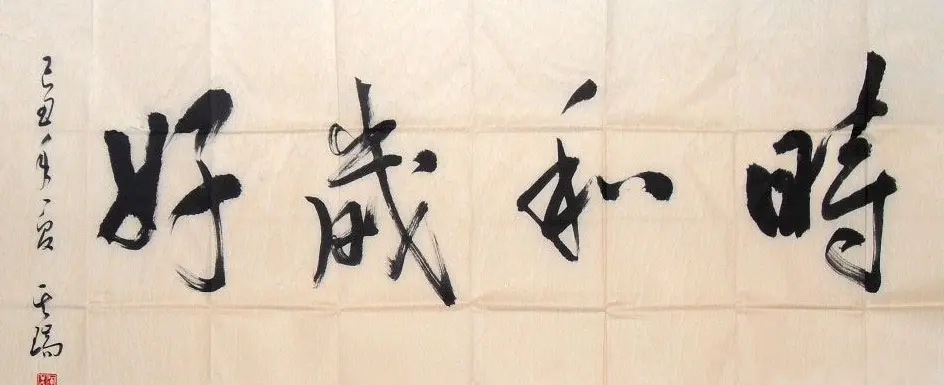 時和歲好
己丑年